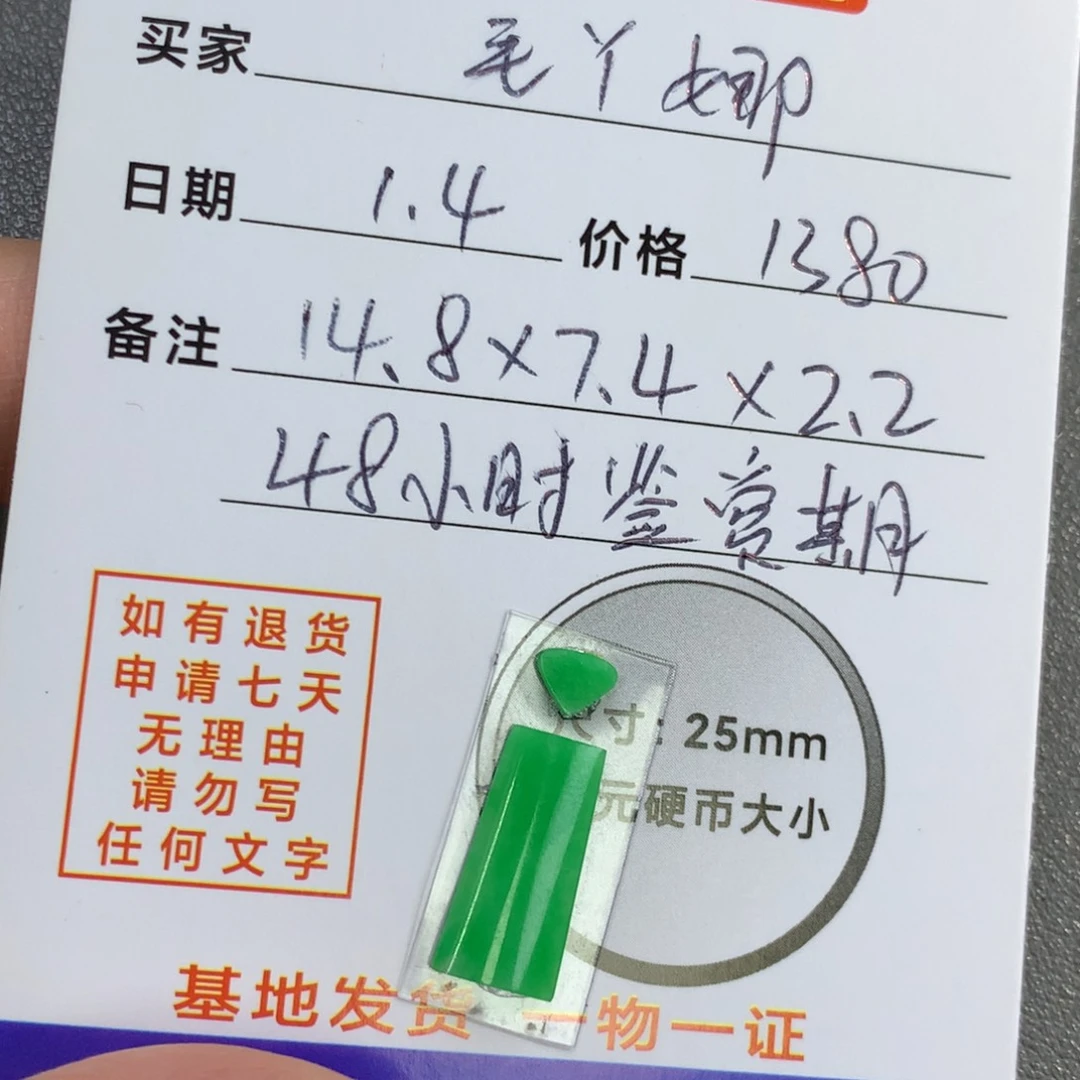 买家 毛丫娜
日期 1.4 价格 1380
备注 14.8×7.4×2.2
48小时鉴赏期
如有退货
申请七天
无理由
请勿写
任何文字
尺寸: 25mm
元硬币大小
基地发货 一物一证